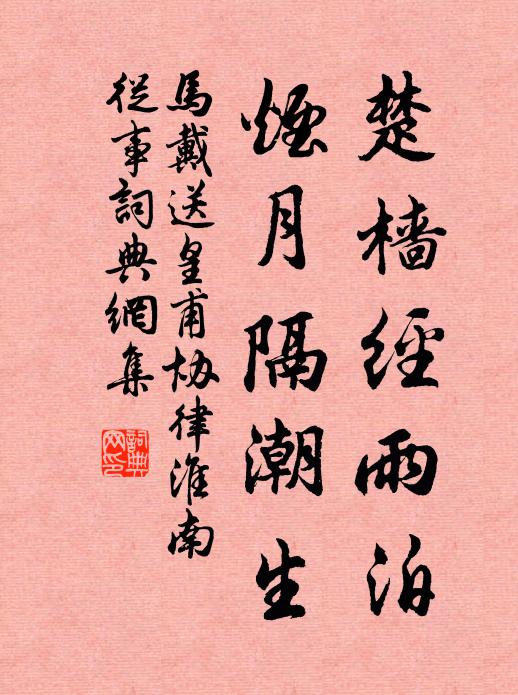 楚檣經雨泊
煙月隔潮生
馬戴送皇甫協律淮南
從事詞典網集
詞典
网印